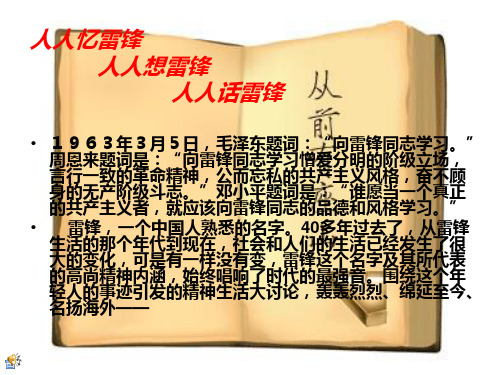 人人忆雷锋
人人想雷锋
人人话雷锋
• １９６３年３月５日，毛泽东题词：“向雷锋同志学习。”
周恩来题词是：“向雷锋同志学习憎爱分明的阶级立场，
言行一致的革命精神，公而忘私的共产主义风格，奋不顾
身的无产阶级斗志。”邓小平题词是：“谁愿当一个真正
的共产主义者，就应该向雷锋同志的品德和风格学习。”
• 雷锋，一个中国人熟悉的名字。40多年过去了，从雷锋
生活的那个年代到现在，社会和人们的生活已经发生了很
大的变化，可是有一样没有变，雷锋这个名字及其所代表
的高尚精神内涵，始终唱响了时代的最强音。围绕这个年
轻人的事迹引发的精神生活大讨论，轰轰烈烈、绵延至今、
名扬海外——
从前